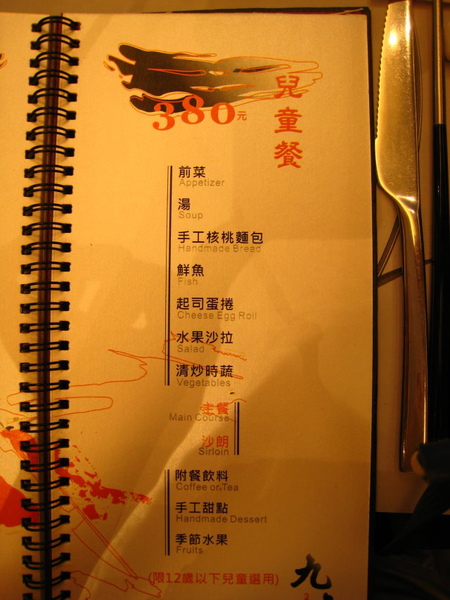 380元
兒童餐
前菜
Appetizer
湯
Soup
手工核桃麵包
Handmade Bread
鮮魚
Fish
起司蛋捲
Cheese Egg Roll
水果沙拉
Salad
清炒時蔬
Vegetables
主餐
Main Course
沙朗
Sirloin
附餐飲料
Coffee or Tea
手工甜點
Handmade Dessert
季節水果
Fruits
(限12歲以下兒童選用)
九